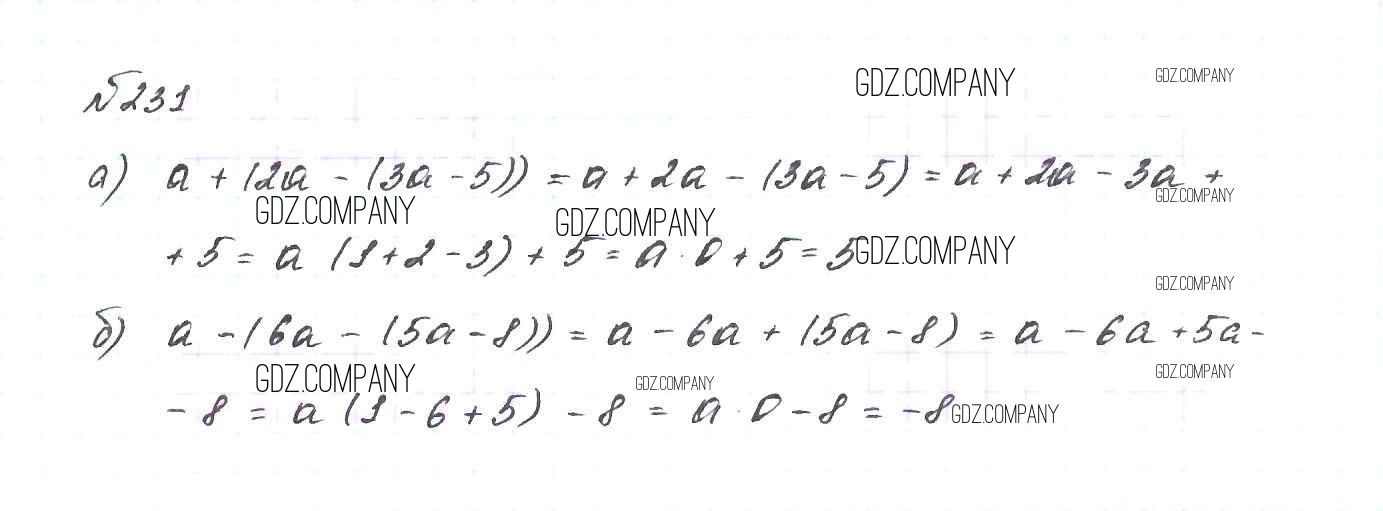 №231
GDZ.COMPANY GDZ.COMPANY
а) a + (2a - (3a - 5)) = a + 2a - (3a - 5) = a + 2a - 3a +
GDZ.COMPANY GDZ.COMPANY GDZ.COMPANY
+ 5 = a (1 + 2 - 3) + 5 = a · 0 + 5 = 5
GDZ.COMPANY
GDZ.COMPANY
б) a - (6a - (5a - 8)) = a - 6a + (5a - 8) = a - 6a + 5a -
GDZ.COMPANY GDZ.COMPANY GDZ.COMPANY
- 8 = a (1 - 6 + 5) - 8 = a · 0 - 8 = -8
GDZ.COMPANY